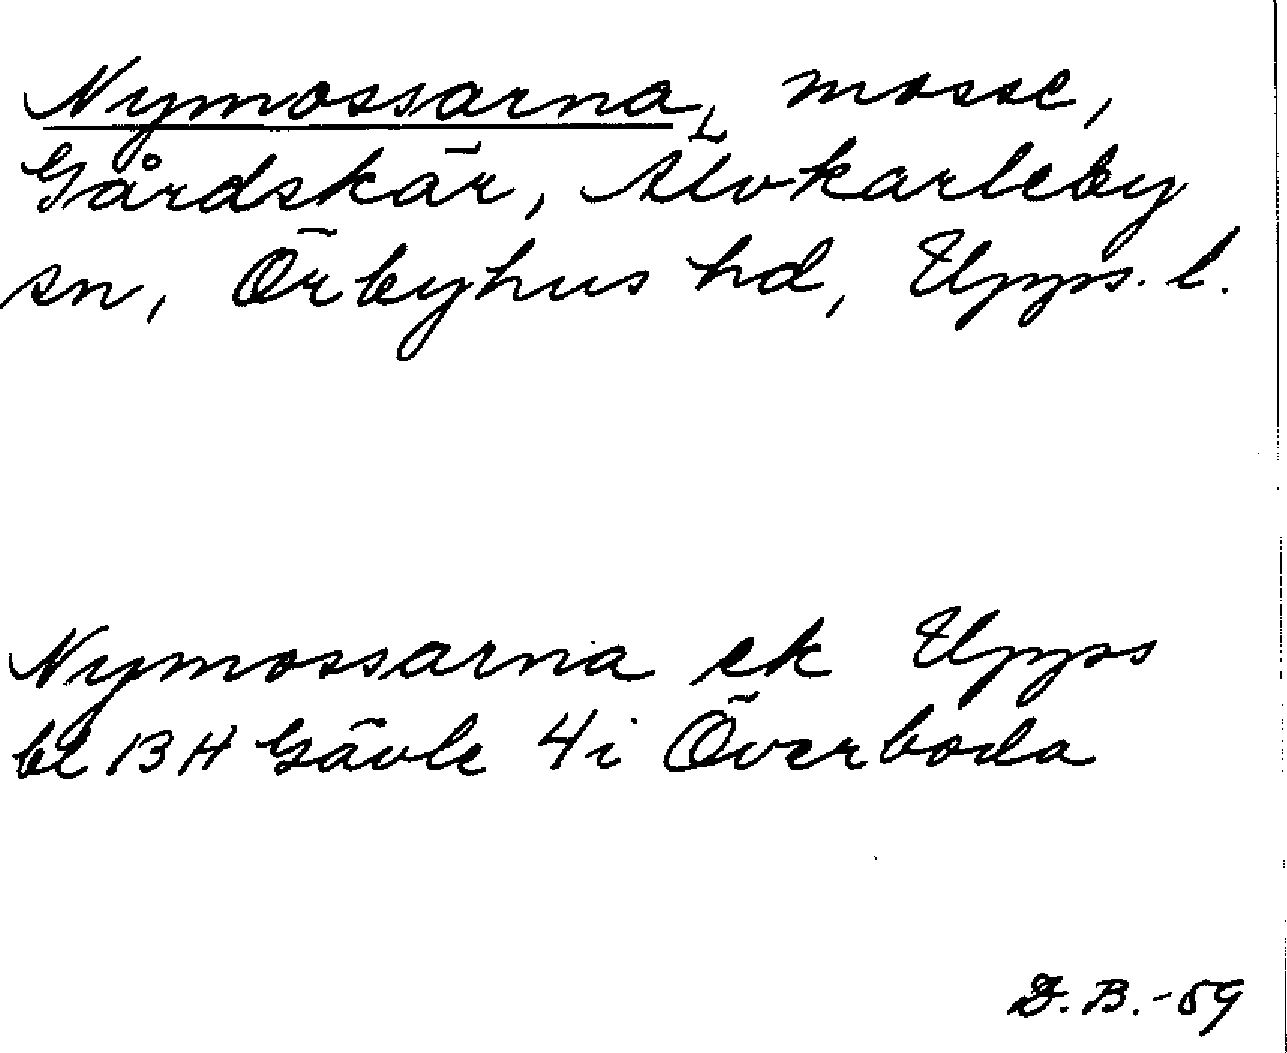 Nymossarna, mosse,
Gårdskär, Älvkarleby
sn, Örbyhus hd, Upps. l.
Nymossarna ek Upps
bl 13 H Gävle 4 i Överboda
D.B.-59